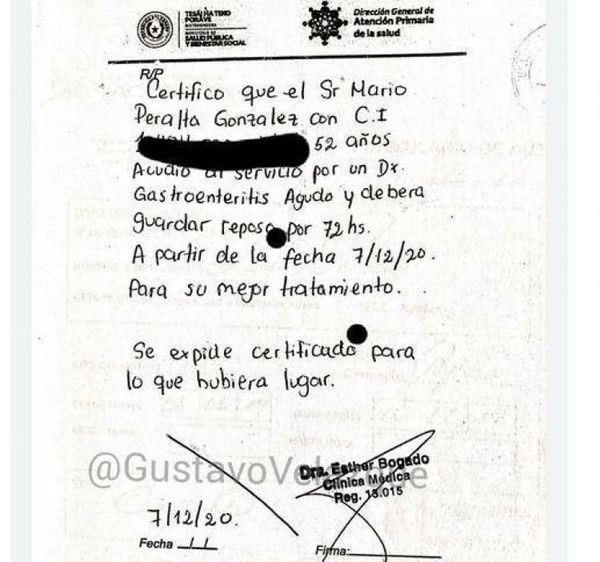 TESÃI HA TEKO
PORÃVE
MINISTERIO DE
SALUD PÚBLICA
Y BIENESTAR SOCIAL
Dirección General de
Atención Primaria
de la salud
R/P
Certifico que el Sr Mario
Peralta Gonzalez con C.I
52 años
Acudio al servicio por un Dx.
Gastroenteritis Agudo y debera
guardar reposo por 72 hs.
A partir de la fecha 7/12/20.
Para su mejor tratamiento.
Se expide certificado para
lo que hubiera lugar.
@Gustavo
Dra. Esther Bogado
Clínica Médica
Reg. 13.015
7/12/20.
Fecha / /
Firma: